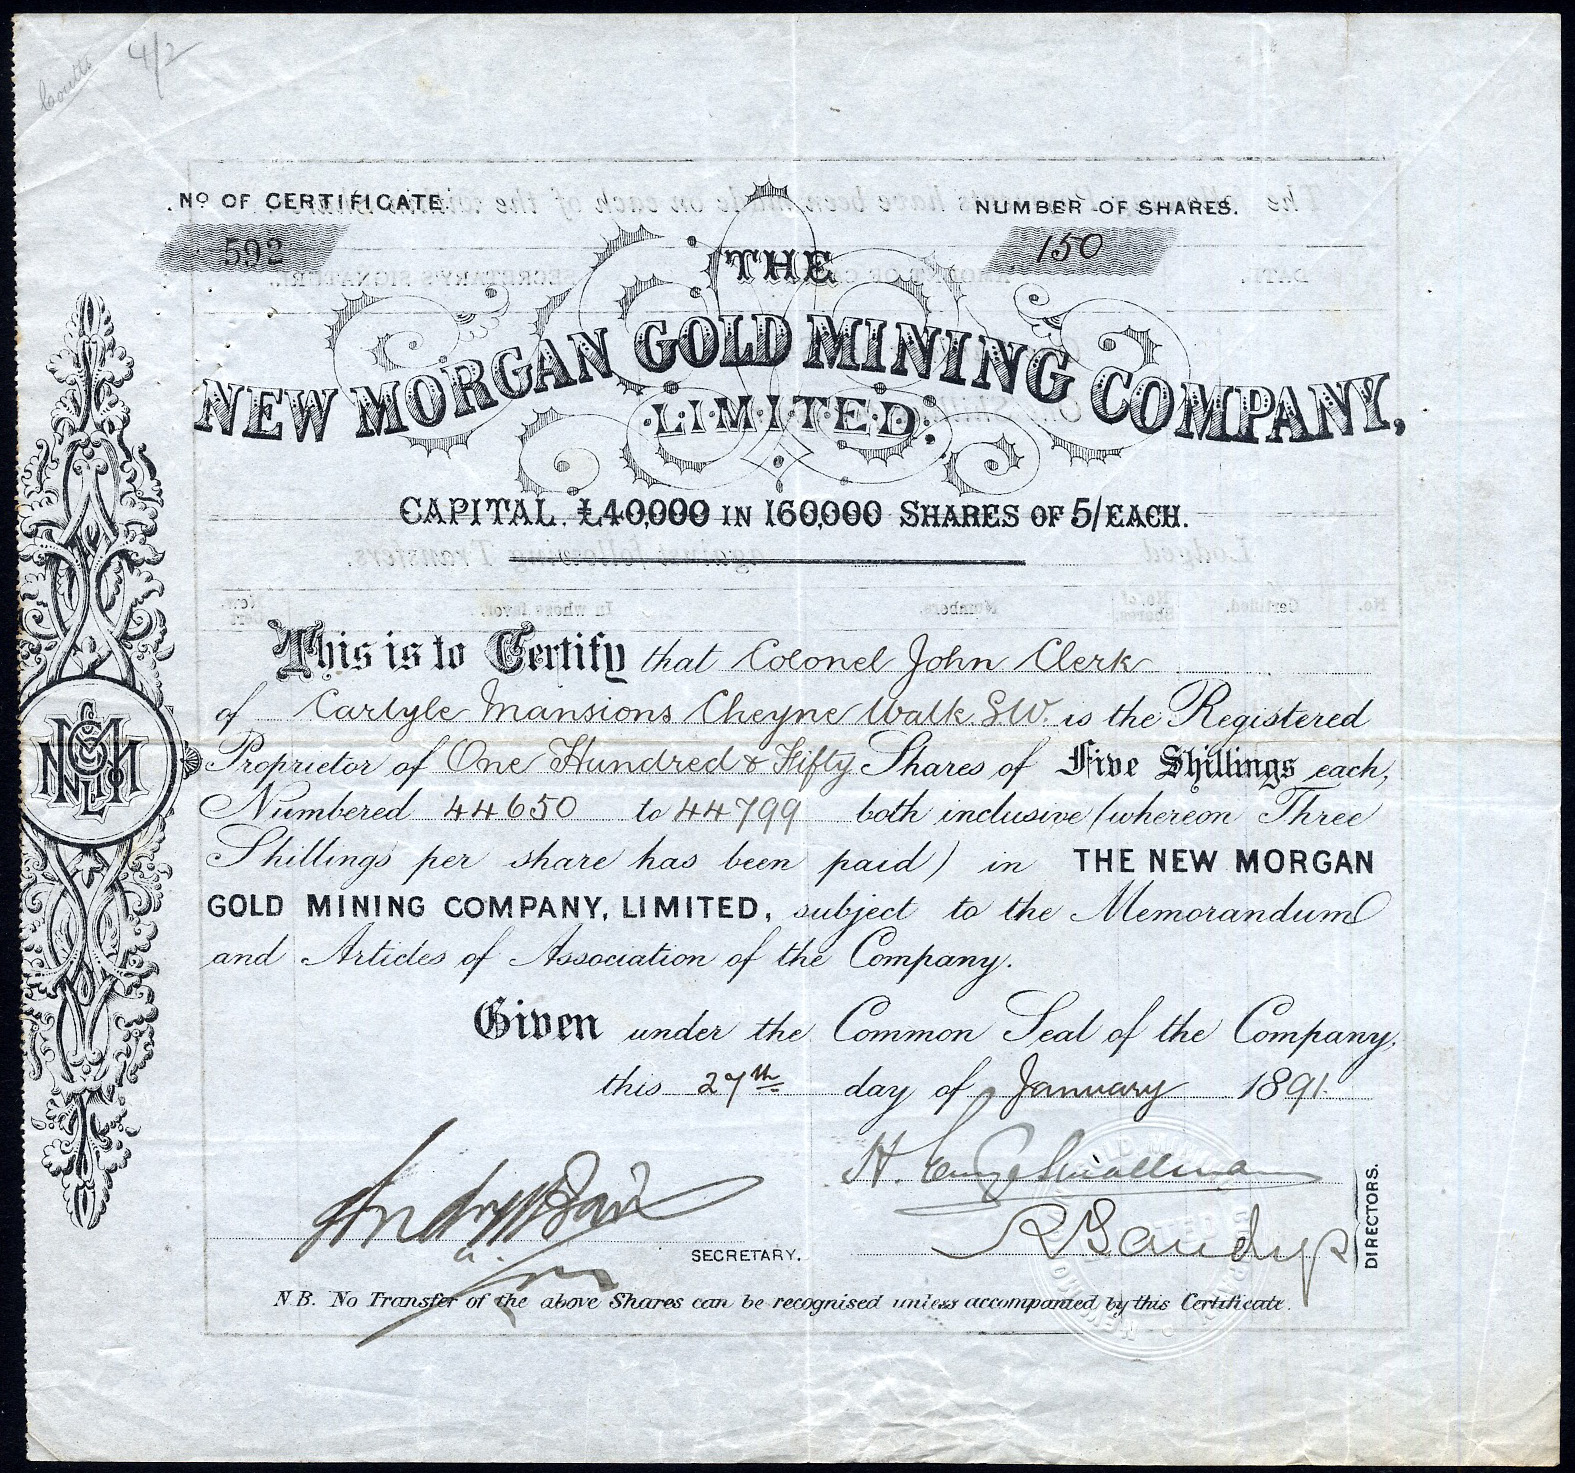 Coutts 4/2
Nº OF CERTIFICATE. NUMBER OF SHARES.
592 150
THE
NEW MORGAN GOLD MINING COMPANY,
LIMITED.
CAPITAL. £40,000 IN 160,000 SHARES OF 5/ EACH.
This is to Certify that Colonel John Clerk
of Carlyle Mansions Cheyne Walk S.W. is the Registered
Proprietor of One Hundred & Fifty Shares of Five Shillings each,
Numbered 44650 to 44799 both inclusive (whereon Three
Shillings per share has been paid) in THE NEW MORGAN
GOLD MINING COMPANY, LIMITED, subject to the Memorandum
and Articles of Association of the Company.
Given under the Common Seal of the Company,
this 27th day of January 1891.
H. Smallman
R Bandys
SECRETARY. DIRECTORS.
N.B. No Transfer of the above Shares can be recognised unless accompanied by this Certificate.